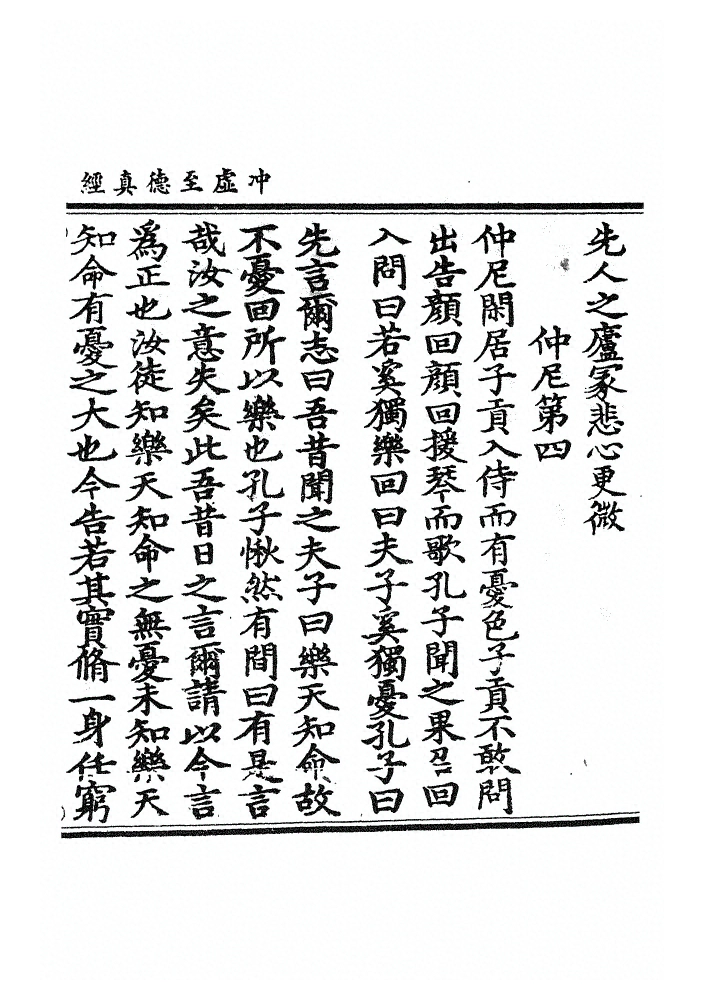 冲虛至德真經
先人之廬冢悲心更微
仲尼第四
仲尼閑居子貢入侍而有憂色子貢不敢問
出告顏回顏回援琴而歌孔子聞之果召回
入問曰若奚獨樂回曰夫子奚獨憂孔子曰
先言爾志曰吾昔聞之夫子曰樂天知命故
不憂回所以樂也孔子愀然有間曰有是言
哉汝之意失矣此吾昔日之言爾請以今言
為正也汝徒知樂天知命之無憂未知樂天
知命有憂之大也今告若其實脩一身任窮